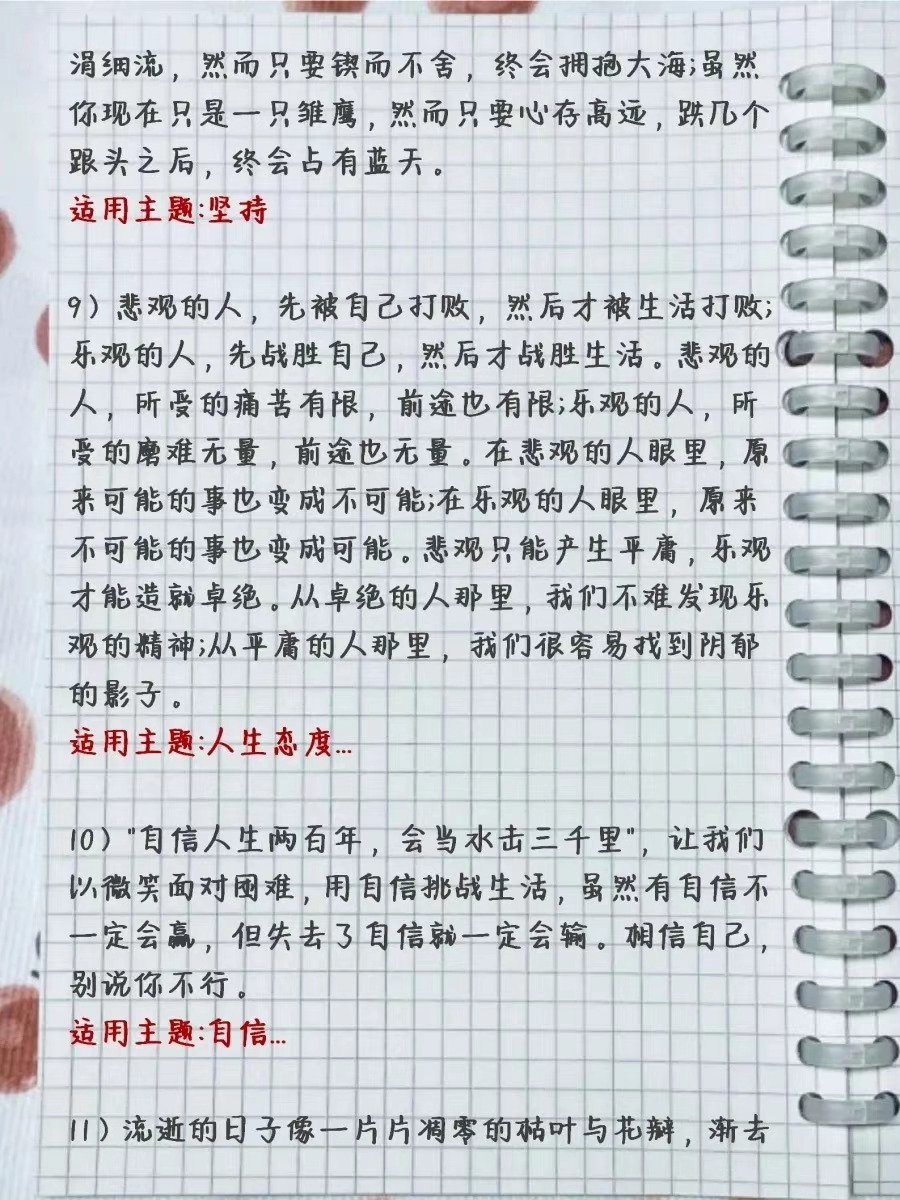 涓细流，然而只要锲而不舍，终会拥抱大海;虽然
你现在只是一只雏鹰，然而只要心存高远，跌几个
跟头之后，终会占有蓝天。
适用主题:坚持
9）悲观的人，先被自己打败，然后才被生活打败;
乐观的人，先战胜自己，然后才战胜生活。悲观的
人，所受的痛苦有限，前途也有限;乐观的人，所
受的磨难无量，前途也无量。在悲观的人眼里，原
来可能的事也变成不可能;在乐观的人眼里，原来
不可能的事也变成可能。悲观只能产生平庸，乐观
才能造就卓绝。从卓绝的人那里，我们不难发现乐
观的精神;从平庸的人那里，我们很容易找到阴郁
的影子。
适用主题:人生态度...
10）"自信人生两百年，会当水击三千里"，让我们
以微笑面对困难，用自信挑战生活，虽然有自信不
一定会赢，但失去了自信就一定会输。相信自己，
别说你不行。
适用主题:自信...
11）流逝的日子像一片片凋零的枯叶与花瓣，渐去